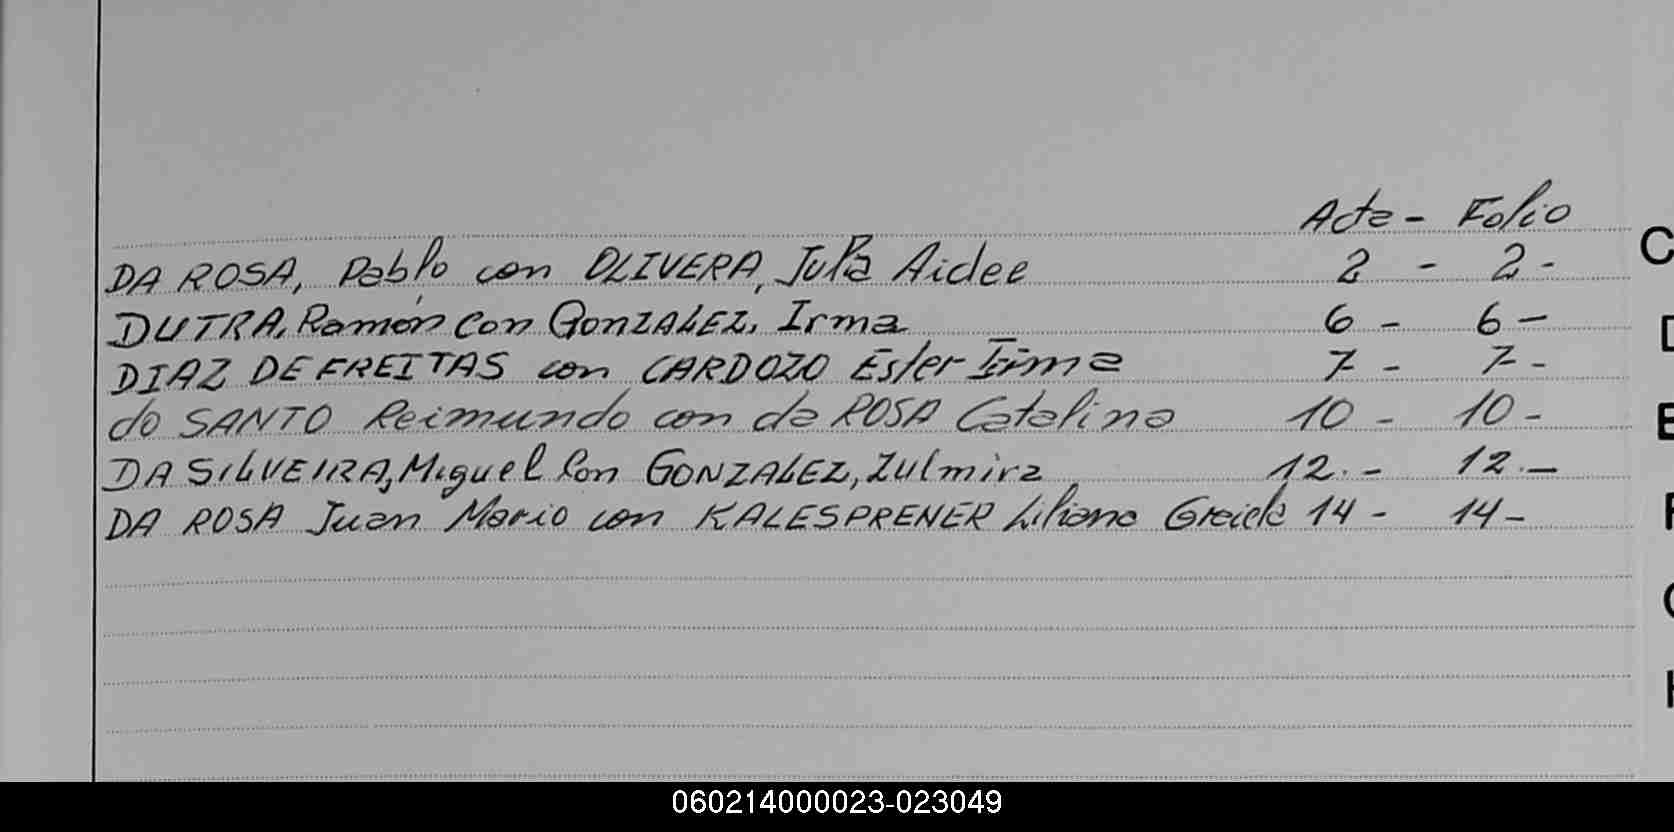 Acta - Folio
DA ROSA, Pablo con OLIVERA, Julia Aidee 2 - 2 -
DUTRA, Ramón Con GonZALEZ, Irma 6 - 6 -
DIAZ DE FREITAS con CARDOZO Ester Irma 7 - 7 -
do SANTO Reimundo con da ROSA Catalina 10 - 10 -
DA SILVEIRA, Miguel Con GONZALEZ, Zulmira 12. - 12. -
DA ROSA Juan Mario con KALESPRENER Liliana Greicle 14 - 14 -
C
D
E
F
G
H
060214000023-023049